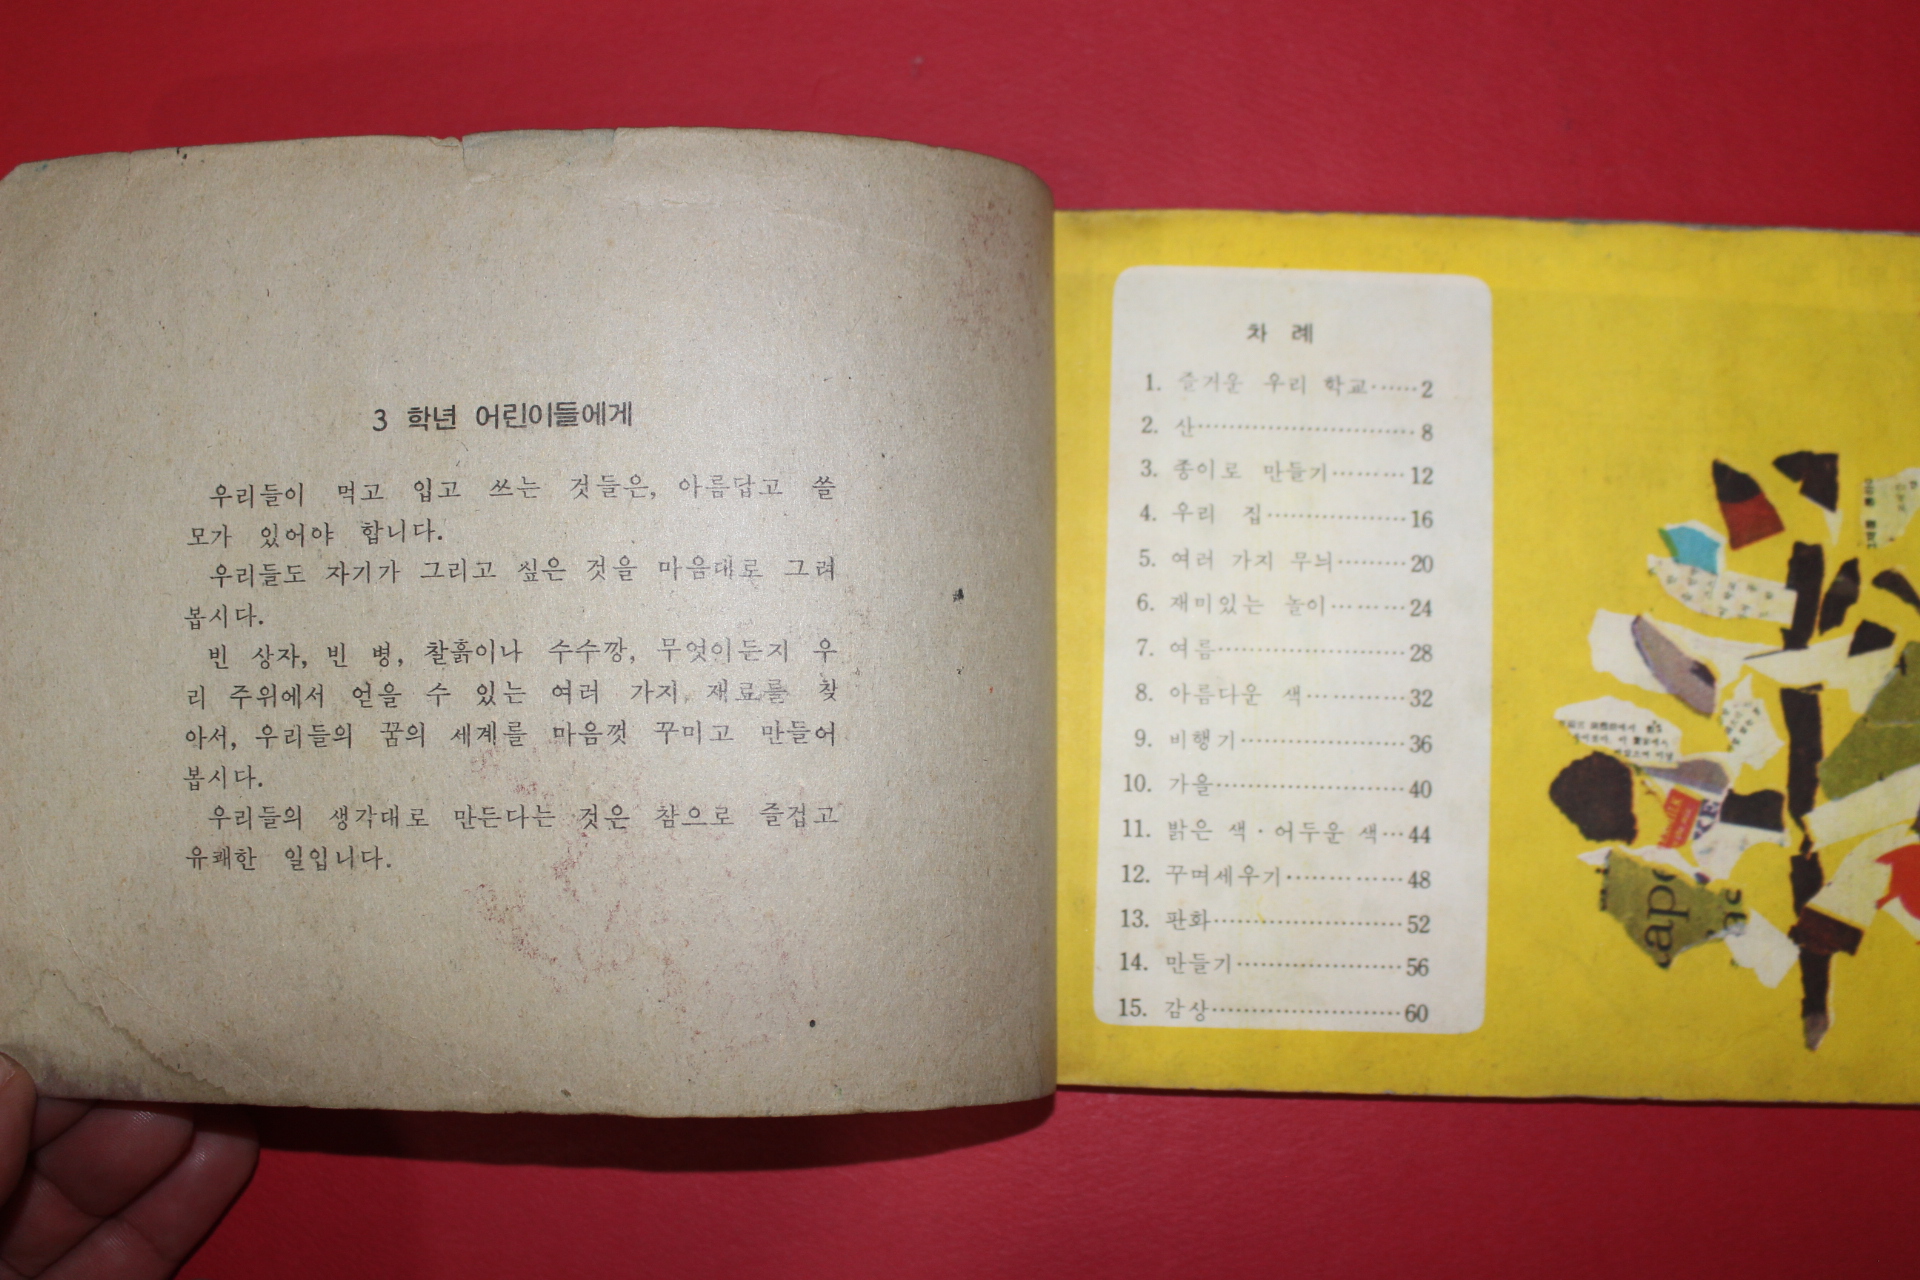 3 학년 어린이들에게
우리들이 먹고 입고 쓰는 것들은, 아름답고 쓸
모가 있어야 합니다.
우리들도 자기가 그리고 싶은 것을 마음대로 그려
봅시다.
빈 상자, 빈 병, 찰흙이나 수수깡, 무엇이든지 우
리 주위에서 얻을 수 있는 여러 가지 재료를 찾
아서, 우리들의 꿈의 세계를 마음껏 꾸미고 만들어
봅시다.
우리들의 생각대로 만든다는 것은 참으로 즐겁고
유쾌한 일입니다.
차 례
1. 즐거운 우리 학교……2
2. 산…………………………8
3. 종이로 만들기………12
4. 우리 집………………16
5. 여러 가지 무늬………20
6. 재미있는 놀이………24
7. 여름……………………28
8. 아름다운 색…………32
9. 비행기…………………36
10. 가을……………………40
11. 밝은 색·어두운 색…44
12. 꾸며세우기……………48
13. 판화……………………52
14. 만들기…………………56
15. 감상……………………60
ape